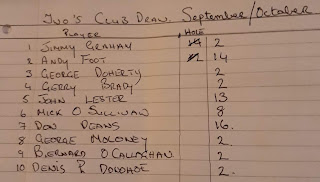 TWO'S CLUB DRAW. September/October
PLAYER HOLE
1 JIMMY GRAHAM 2
2 ANDY FOOT 14
3 GEORGE DOHERTY 2
4 GERRY BRADY 2
5 JOHN LESTER 13
6 MICK O SULLIVAN 8
7 DON DEANS 16.
8 GEORGE MOLONEY 2.
9 BERNARD O CALLAGHAN. 2
10 DENIS P DONOHOE 2.